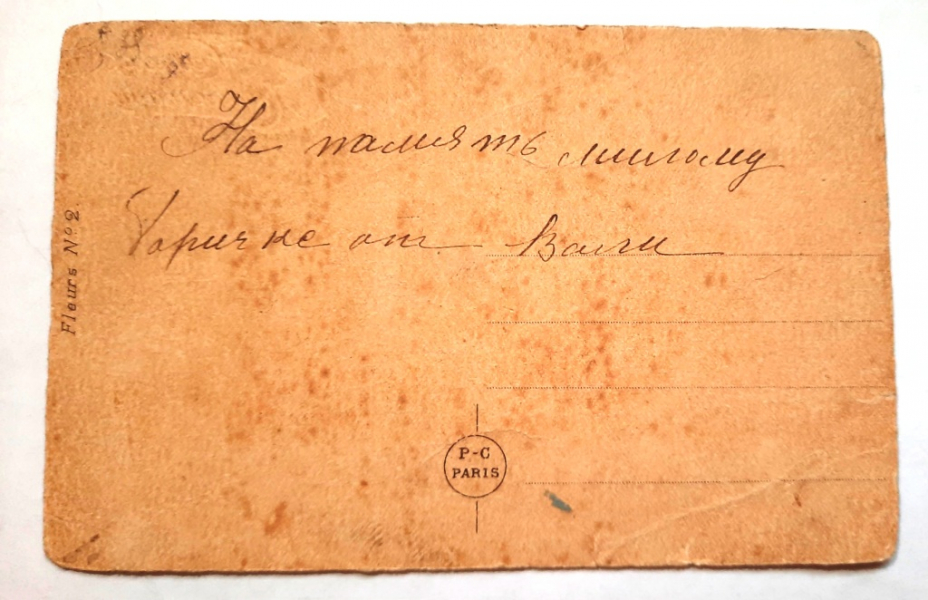 На память милому
от Вали
Fleurs Nº 2.
P-C
PARIS